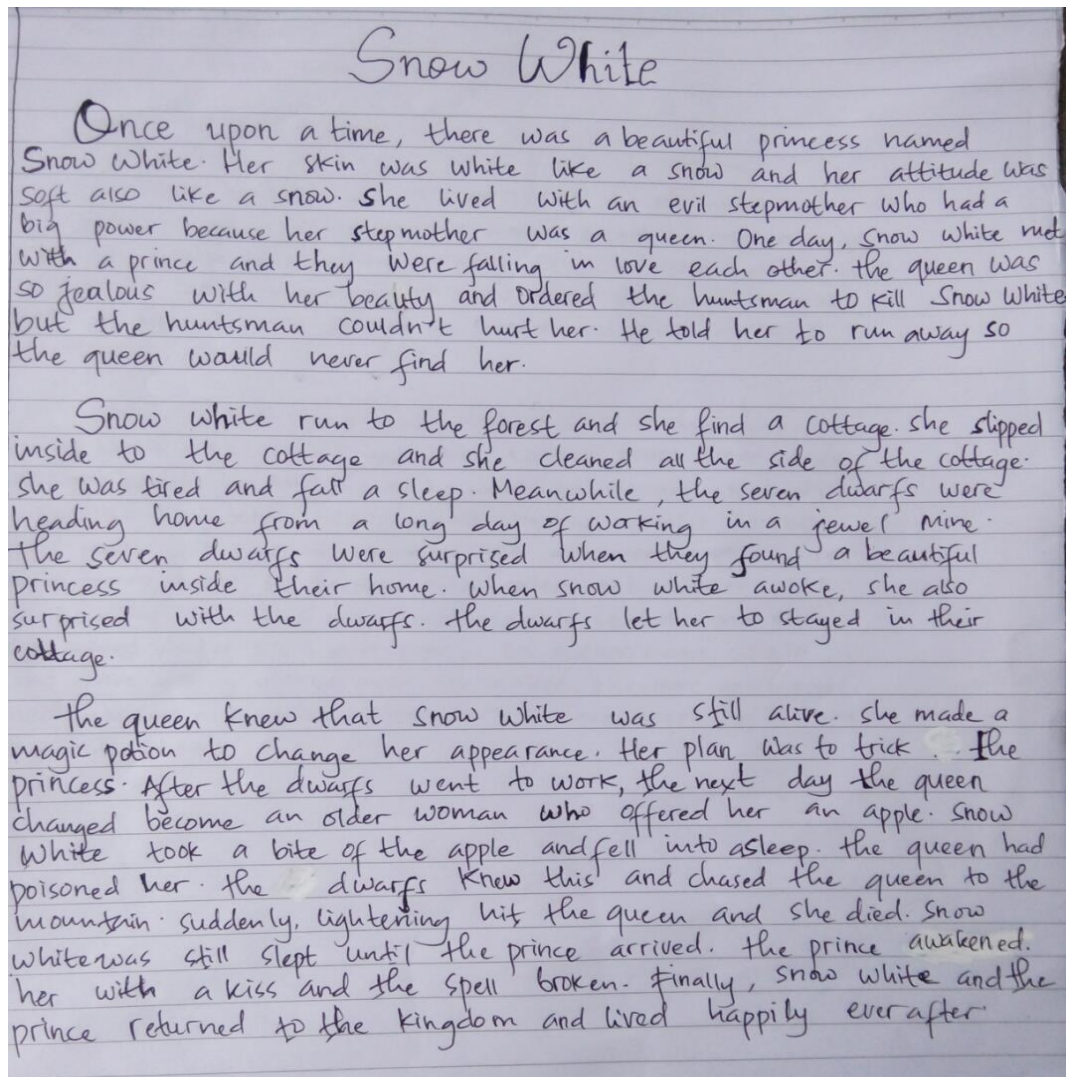 Snow White
Once upon a time, there was a beautiful princess named
Snow White. Her skin was white like a snow and her attitude was
soft also like a snow. She lived with an evil stepmother who had a
big power because her stepmother was a queen. One day, snow white met
with a prince and they were falling in love each other. the queen was
so jealous with her beauty and ordered the huntsman to kill Snow White
but the huntsman couldn't hurt her. He told her to run away so
the queen would never find her.
Snow white run to the forest and she find a cottage. she slipped
inside to the cottage and she cleaned all the side of the cottage.
she was tired and fall a sleep. Meanwhile, the seven dwarfs were
heading home from a long day of working in a jewel mine.
the seven dwarfs were surprised when they found a beautiful
princess inside their home. when snow white awoke, she also
surprised with the dwarfs. the dwarfs let her to stayed in their
cottage.
the queen knew that snow white was still alive. she made a
magic potion to change her appearance. Her plan was to trick the
princess. After the dwarfs went to work, the next day the queen
changed become an older woman who offered her an apple. snow
white took a bite of the apple and fell into asleep. the queen had
poisoned her. the dwarfs knew this and chased the queen to the
mountain. suddenly, lightening hit the queen and she died. snow
white was still slept until the prince arrived. the prince awakened.
her with a kiss and the spell broken. Finally, snow white and the
prince returned to the kingdom and lived happily ever after